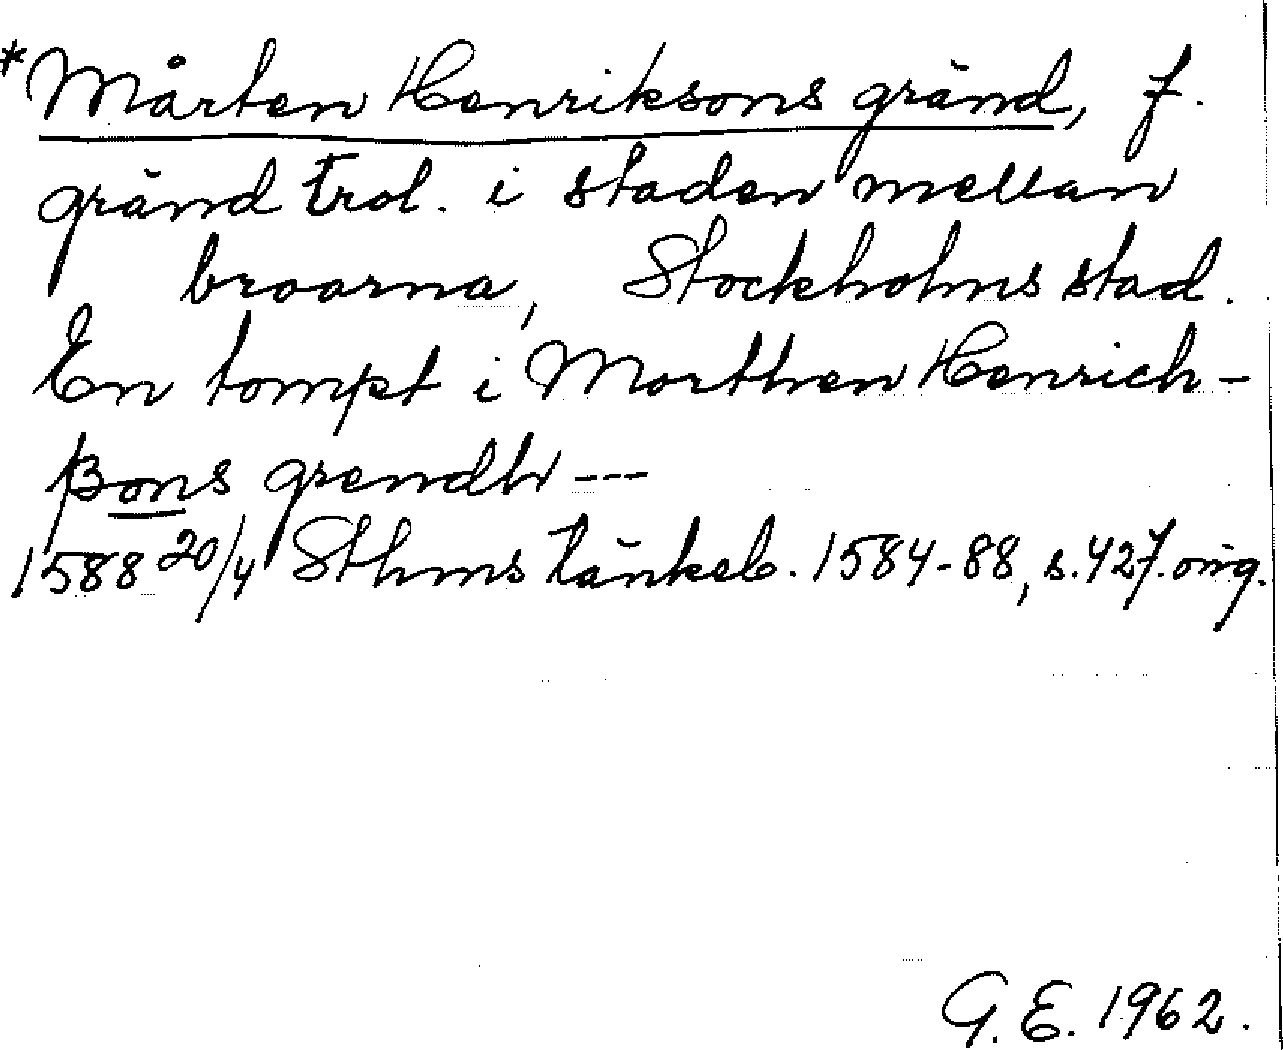 *Mårten Henriksons gränd, f.
gränd trol. i staden mellan
broarna, Stockholms stad.
En tompt i Morthen Henrich-
ßons grendh ---
1588 20/4 Sthms tänkeb. 1584-88, s. 427. orig.
G. E. 1962.